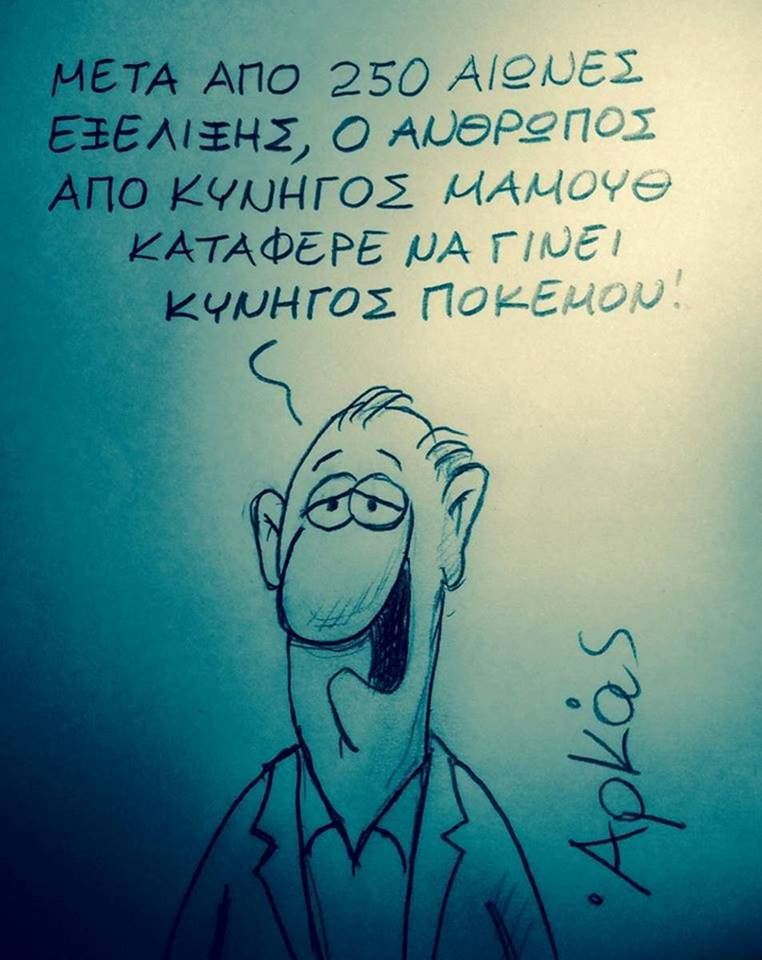 ΜΕΤΑ ΑΠΟ 250 ΑΙΩΝΕΣ
ΕΞΕΛΙΞΗΣ, Ο ΑΝΘΡΩΠΟΣ
ΑΠΟ ΚΥΝΗΓΟΣ ΜΑΜΟΥΘ
ΚΑΤΑΦΕΡΕ ΝΑ ΓΙΝΕΙ
ΚΥΝΗΓΟΣ ΠΟΚΕΜΟΝ!
Αρκάς